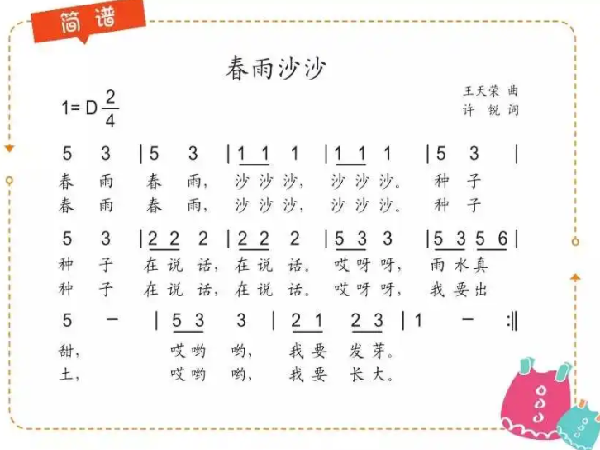 简谱
春雨沙沙
王天荣 曲
1=D 2/4
许 锐 词
5 3 | 5 3 | 1 1 1 | 1 1 1 | 5 3 |
春 雨 春 雨, 沙 沙 沙, 沙 沙 沙。 种 子
春 雨 春 雨, 沙 沙 沙, 沙 沙 沙。 种 子
5 3 | 2 2 2 | 2 2 2 | 5 3 3 | 5 3 5 6 |
种 子 在 说 话, 在 说 话。 哎 呀 呀, 雨 水 真
种 子 在 说 话, 在 说 话。 哎 呀 呀, 我 要 出
5 – | 5 3 3 | 2 1 2 2 | 1 – :||
甜, 哎 哟 哟, 我 要 发 芽。
土, 哎 哟 哟, 我 要 长 大。